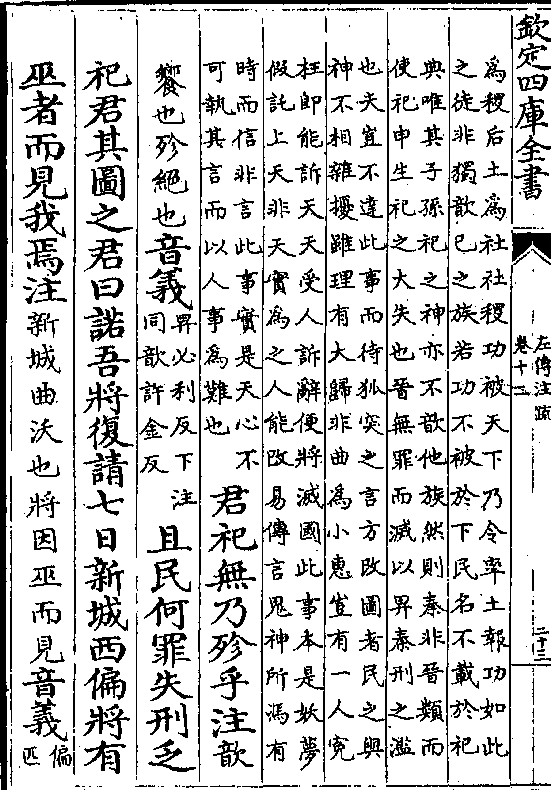 欽定四庫全書
左傳注疏
卷十二
二十三
為稷后土為社社稷功被天下乃令率土報功如此
之徒非獨歆已之族若功不被於下民名不載於祀
典唯其子孫祀之神亦不歆他族然則秦非晉類而
使祀申生祀之大失也晉無罪而滅以畀秦刑之濫
也天豈不達此事而待狐突之言方改圖者民之與
神不相雜擾雖理有大歸非曲為小惠豈有一人寃
枉即能訴天天受人訴辭便將滅國此事本是妖夢
假託上天非天實為之人能改易傳言鬼神所馮有
時而信非言此事實是天心不
可執其言而以人事為難也
君祀無乃殄乎注歆
饗也殄絕也音義
畀必利反下注
同歆許金反
且民何罪失刑乏
祀君其圖之君曰諾吾將復請七日新城西偏將有
巫者而見我焉注新城曲沃也將因巫而見音義
偏
匹